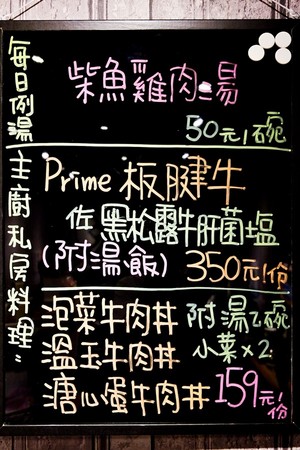 每日例湯
柴魚雞肉湯
50元/碗
主廚私房料理:
Prime 板腱牛
佐黑松露牛肝菌塩
(附湯飯) 350元/份
泡菜牛肉丼 附湯乙碗
溫玉牛肉丼 小菜×2
溏心蛋牛肉丼 159元/份